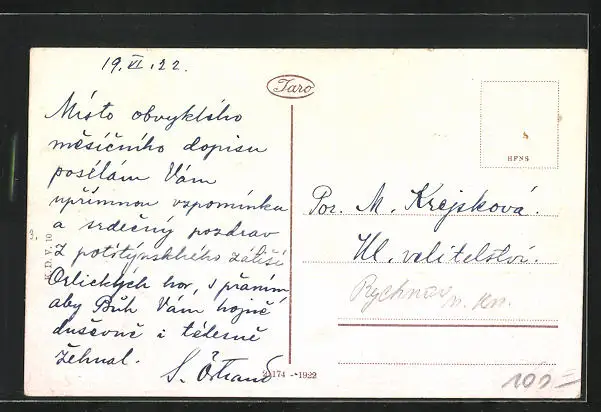 19.VI.22.
Místo obvyklého
měsíčního dopisu
posílám Vám
upřímnou vzpomínku
a srdečný pozdrav
z potštýnského zátiší
Orlických hor, s přáním
aby Bůh Vám hojně
duševně i tělesně
žehnal.
S.
Taro
K. D. V. 10
3.
174 - 1922
HFNS
Por. M. Krejsková.
Hl. velitelství.
Rychnov n. Kn.
100=